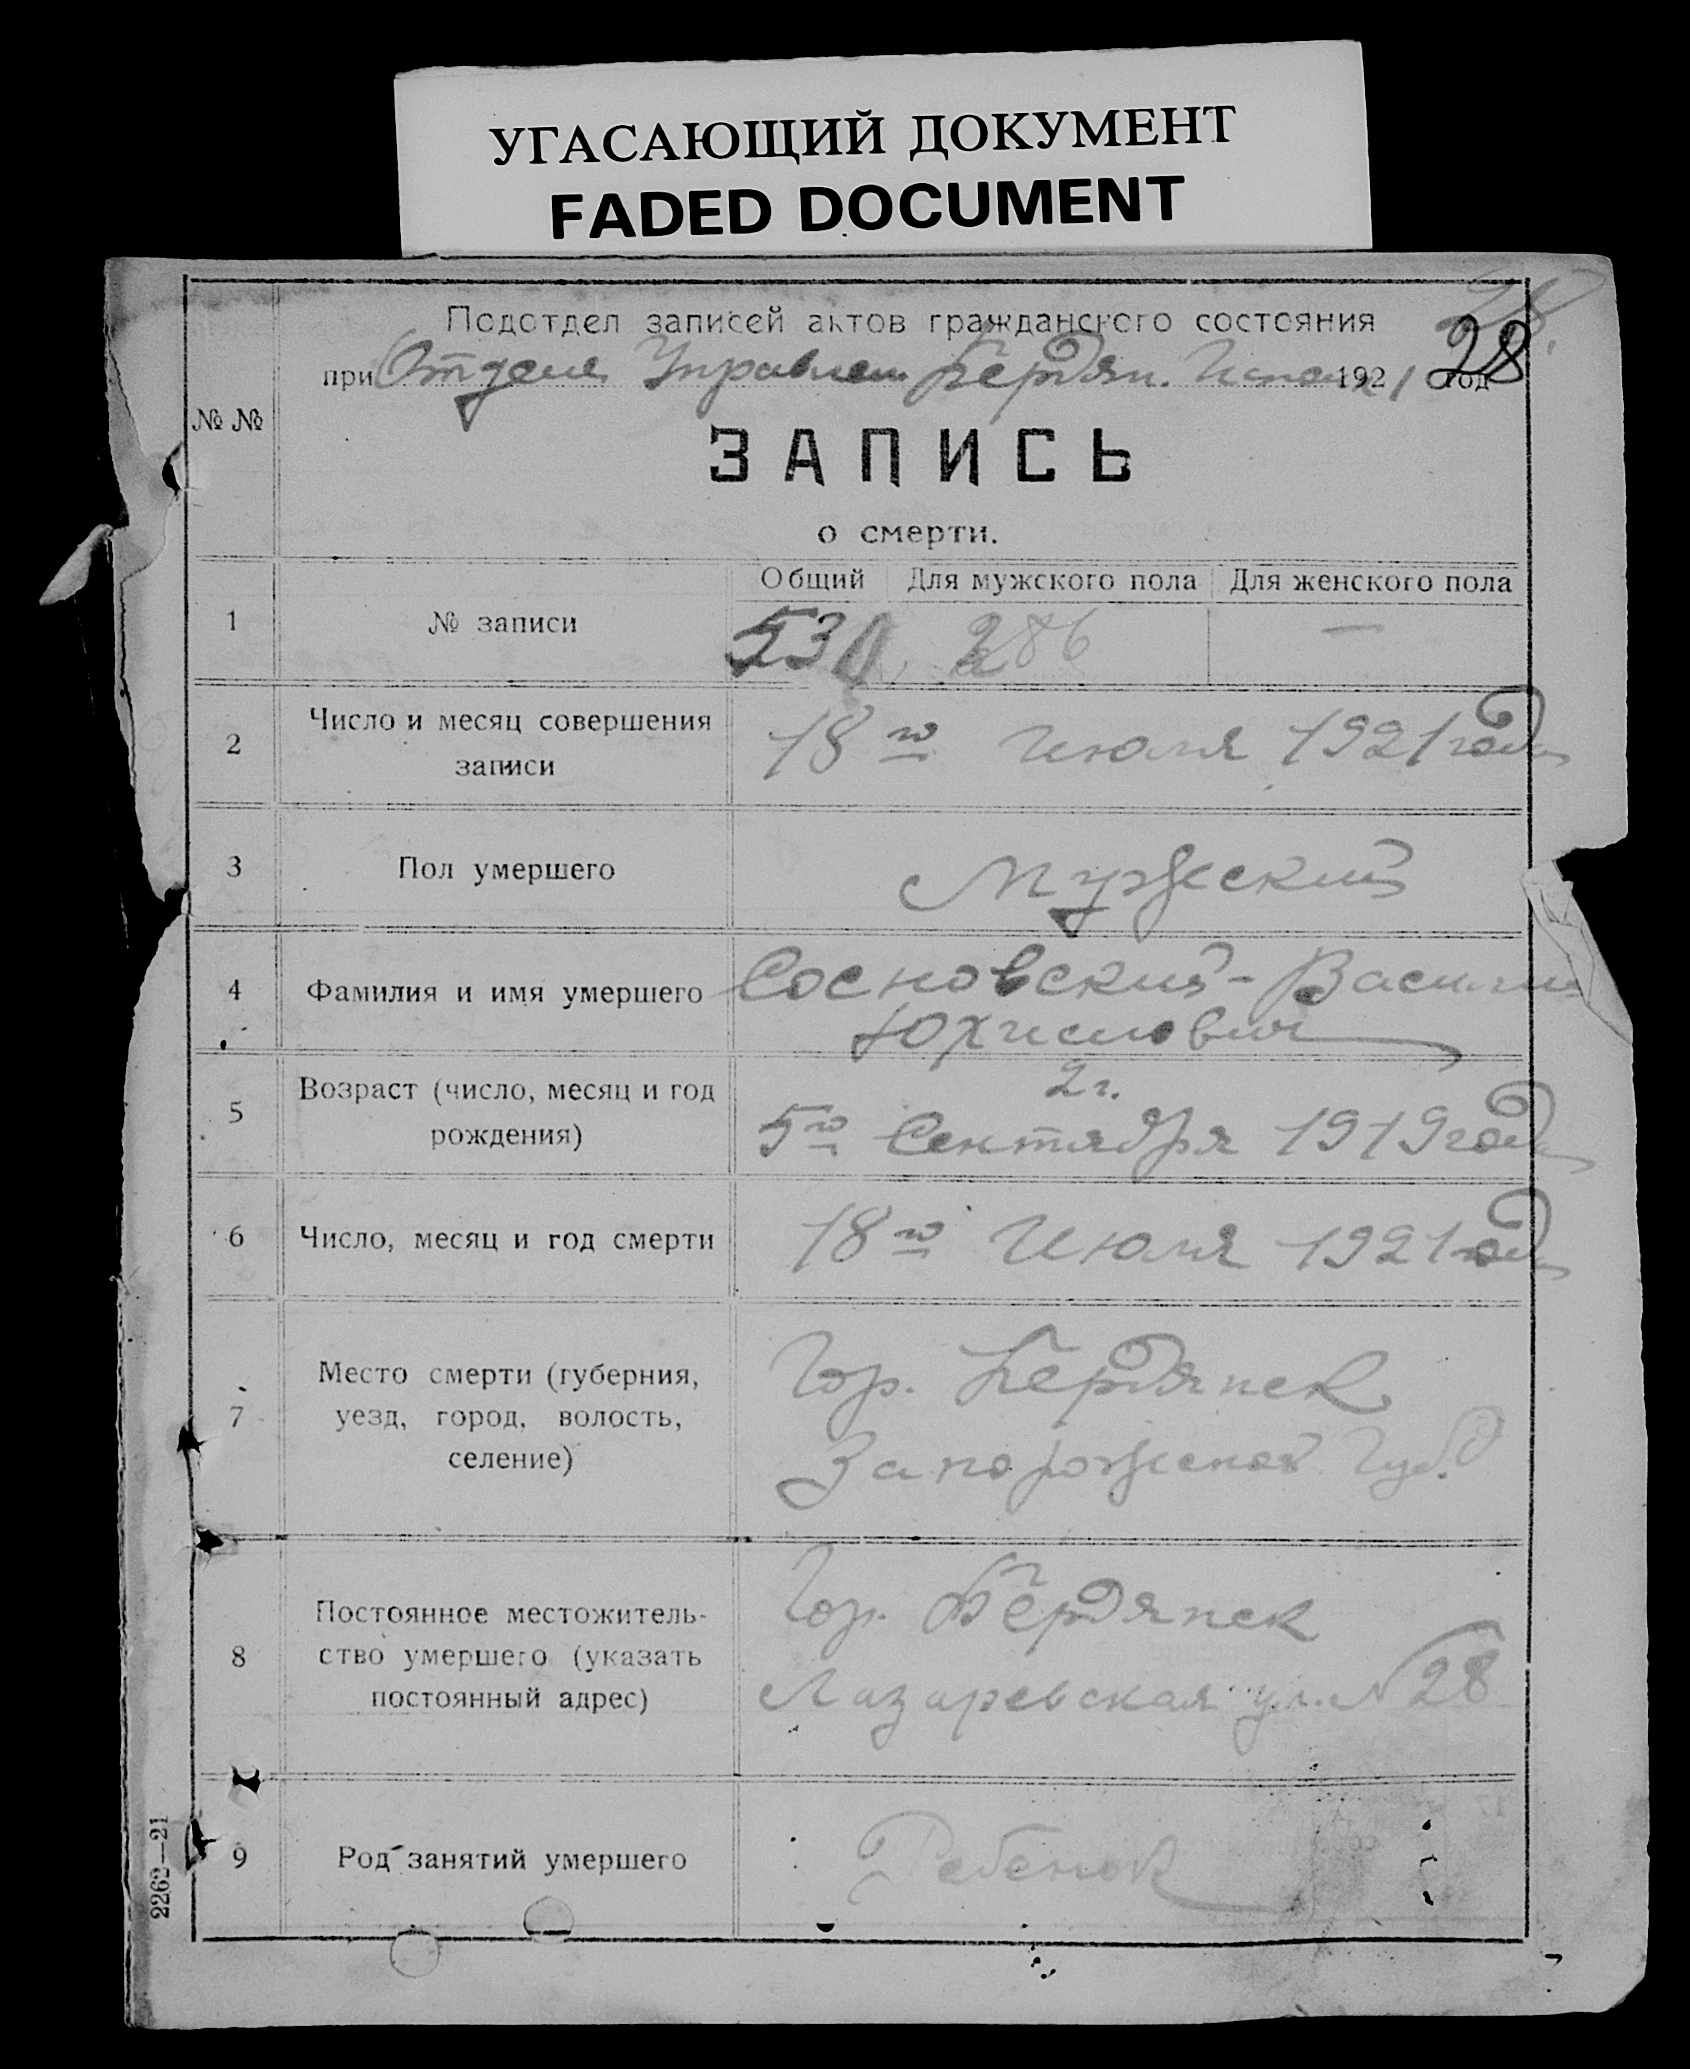 УГАСАЮЩИЙ ДОКУМЕНТ
FADED DOCUMENT
28
Подотдел записей актов гражданского состояния
28
при Отделе Управлен. Бердян. Испол. 1921 год
№ №
ЗАПИСЬ
о смерти.
Общий Для мужского пола Для женского пола
1 № записи 530 286 —
2 Число и месяц совершения
записи
18го Июля 1921 года
3 Пол умершего Мужеский
4 Фамилия и имя умершего Сосновский - Василий
5 Возраст (число, месяц и год
рождения)
2 г.
5го Сентября 1919 года
6 Число, месяц и год смерти 18го Июля 1921 года
7 Место смерти (губерния,
уезд, город, волость,
селение)
Гор. Бердянск
Запорожской Губ.
8 Постоянное местожитель-
ство умершего (указать
постоянный адрес)
Гор. Бердянск
Лазаревская ул. № 28
9 Род занятий умершего Ребенок
2262—21